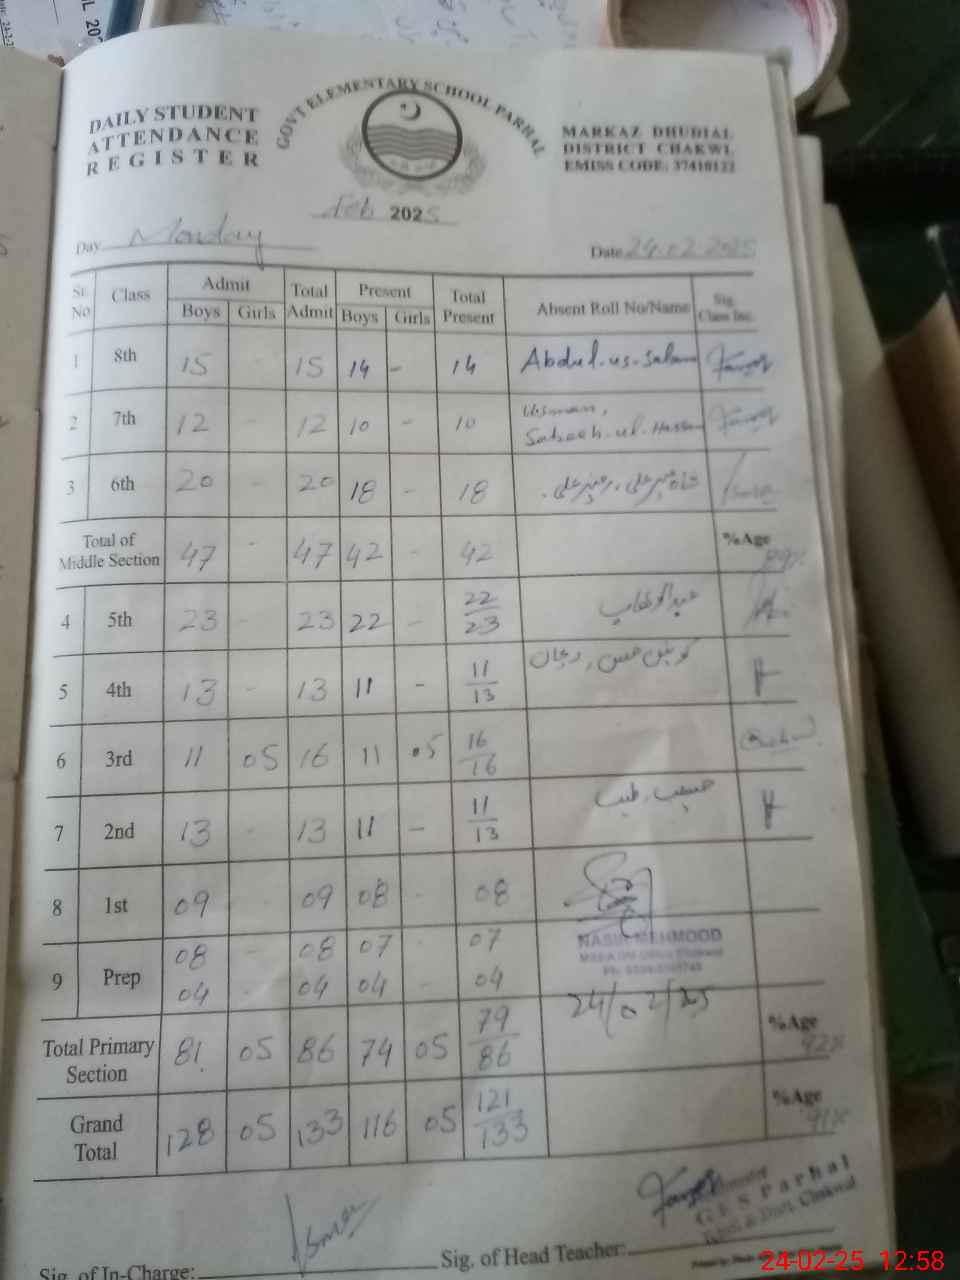 DAILY STUDENT
ATTENDANCE
REGISTER
GOVT ELEMENTARY SCHOOL PARHAL
MARKAZ DHUDIAL
DISTRICT CHAKWL
EMISS CODE: 37410122
Feb 2025
Day Monday
Date 24.02.2025
Sr. No Class Admit Total Admit Present Total Present Absent Roll No/Name Sig. Class Inc.
Boys Girls Boys Girls
1 8th 15 - 15 14 - 14 Abdul-us-Salam
2 7th 12 - 12 10 - 10 Usman,
Sabeeh-ul-Hassan
3 6th 20 - 20 18 - 18
Total of Middle Section 47 - 47 42 - 42 %Age 89%
4 5th 23 - 23 22 - 22/23 عبدالوھاب
5 4th 13 - 13 11 - 11/13
6 3rd 11 05 16 11 05 16/16
7 2nd 13 - 13 11 - 11/13 حسیب، طیب
8 1st 09 - 09 08 - 08
9 Prep 08 - 08 07 - 07
04 - 04 04 - 04
NASIR MEHMOOD
24/02/25
Total Primary Section 81 05 86 74 05 79/86 %Age 92%
Grand Total 128 05 133 116 05 121/133 %Age 91%
Sig. of In-Charge:
Sig. of Head Teacher:
G.E.S Parhal
24-02-25 12:58